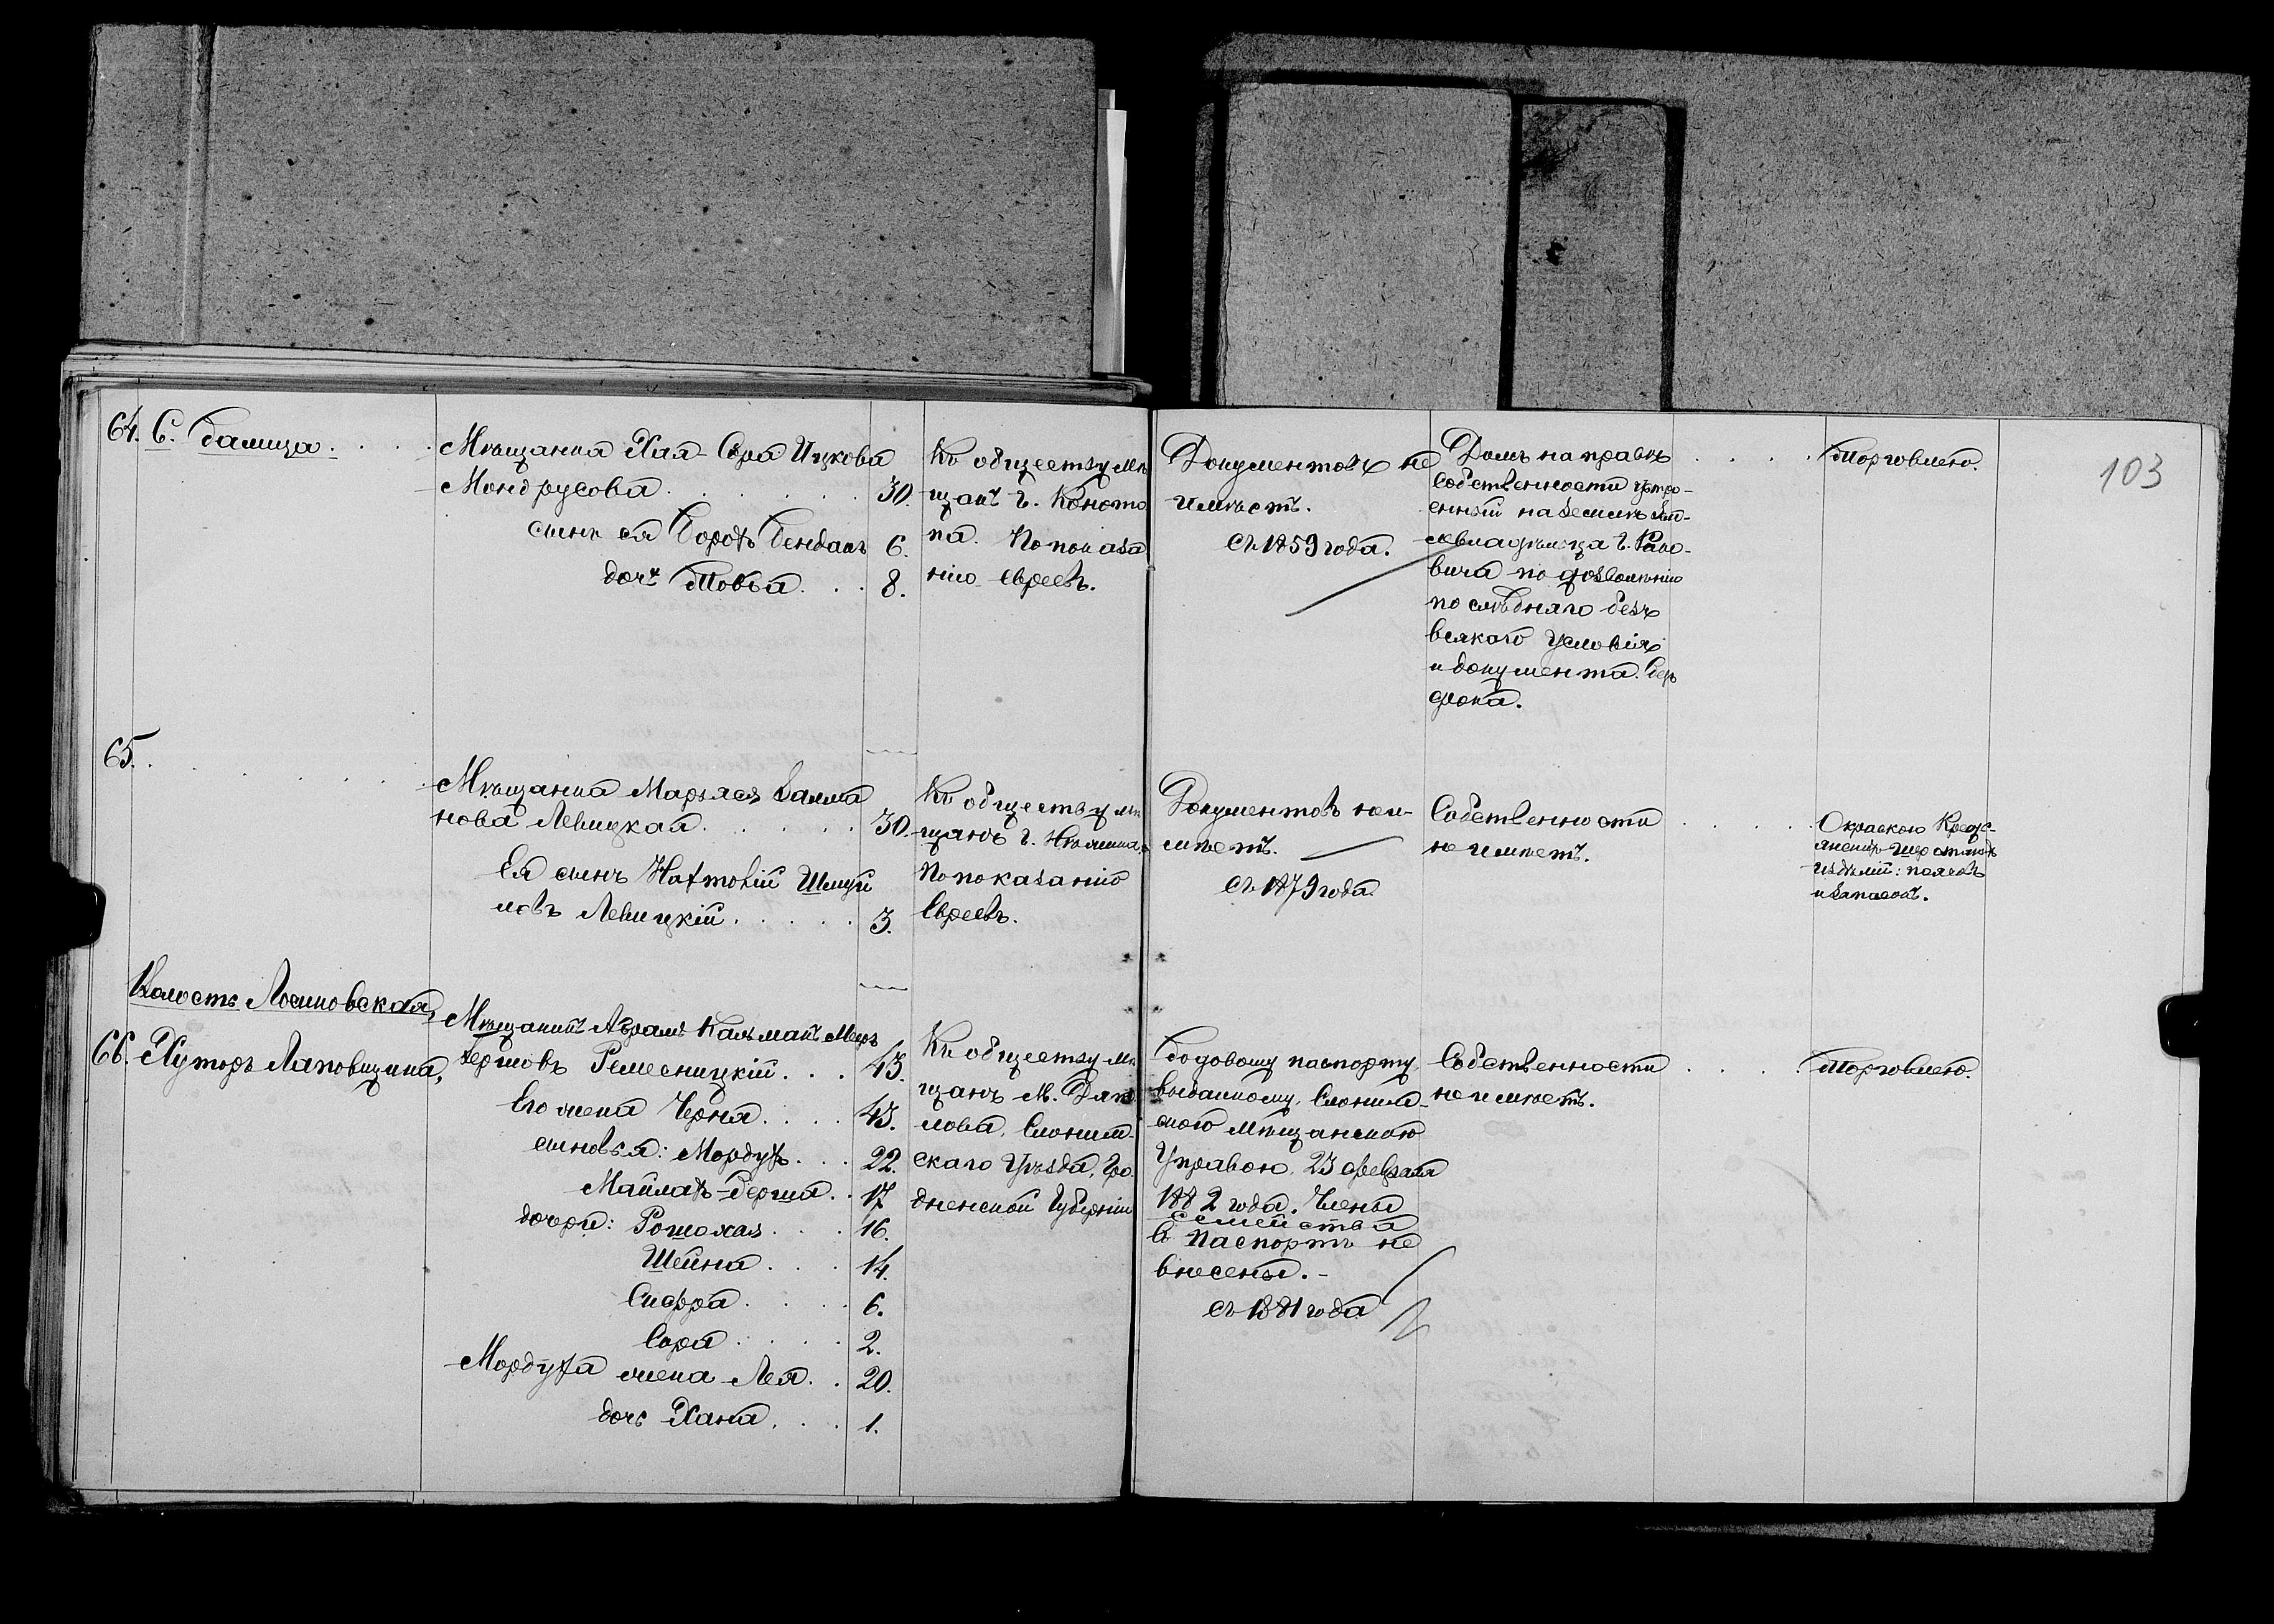 64. С. Галица. . . . .
Мѣщанка Хая-Сора Ицкова
Мондрусова. . . . . . . 30.
сынъ ея Борохъ Бендамъ 6.
дочь Товба. . . 8.
Къ обществу мѣ
щанъ г. Коното
па. По показа
нію евреевъ.
Документовъ не
имѣетъ.
съ 1859 года.
Домъ на правѣ
собственности устро-
енный на землѣ
по дозволенію
послѣдняго безъ
всякаго условія
и документа. Безъ
срока.
. . . . Торговлею.
103
65. . . . . . .
Мѣщанка Марьяся Залма
нова Левицкая. . . . . . 30.
Ея сынъ Нахтовій Шмуй
ловъ Левицкій. . . . . 3.
Къ обществу мѣ
щанъ г. Нѣжина.
По показанію
Евреевъ.
Документовъ не и-
мѣетъ.
съ 1879 года.
Собственности
не имѣетъ.
. . . . Окраскою Кресть-
янскихъ шерстяныхъ
издѣлій: поясовъ
и запасокъ.
Волость Лосиновская,
66. Хуторъ Лаповщина,
Мѣщанинъ Абрамъ Кальманъ Меер
Гершовъ Ремесницкій. . . 43.
Его жена Черня. . . . 43.
сыновья: Мордухъ. . . 22.
Маймахъ-Берша. . 17
дочери: Рошохая. . . 16.
Шейна. . . . 14.
Сифра. . . . 6.
Сора. . . . 2.
Мордуха жена Лея. . 20.
дочь Хана. . . . 1.
Къ обществу мѣ
щанъ М. Дят
лова, Слоним-
скаго Уѣзда, Гро
дненской Губерніи
Годовому паспорту,
выданному Слоним-
скою Мѣщанскою
Управою, 23 февраля
1882 года. Члены
семейства
въ паспортъ не
внесены. -
съ 1881 года
Собственности
не имѣетъ.
. . . . Торговлею.